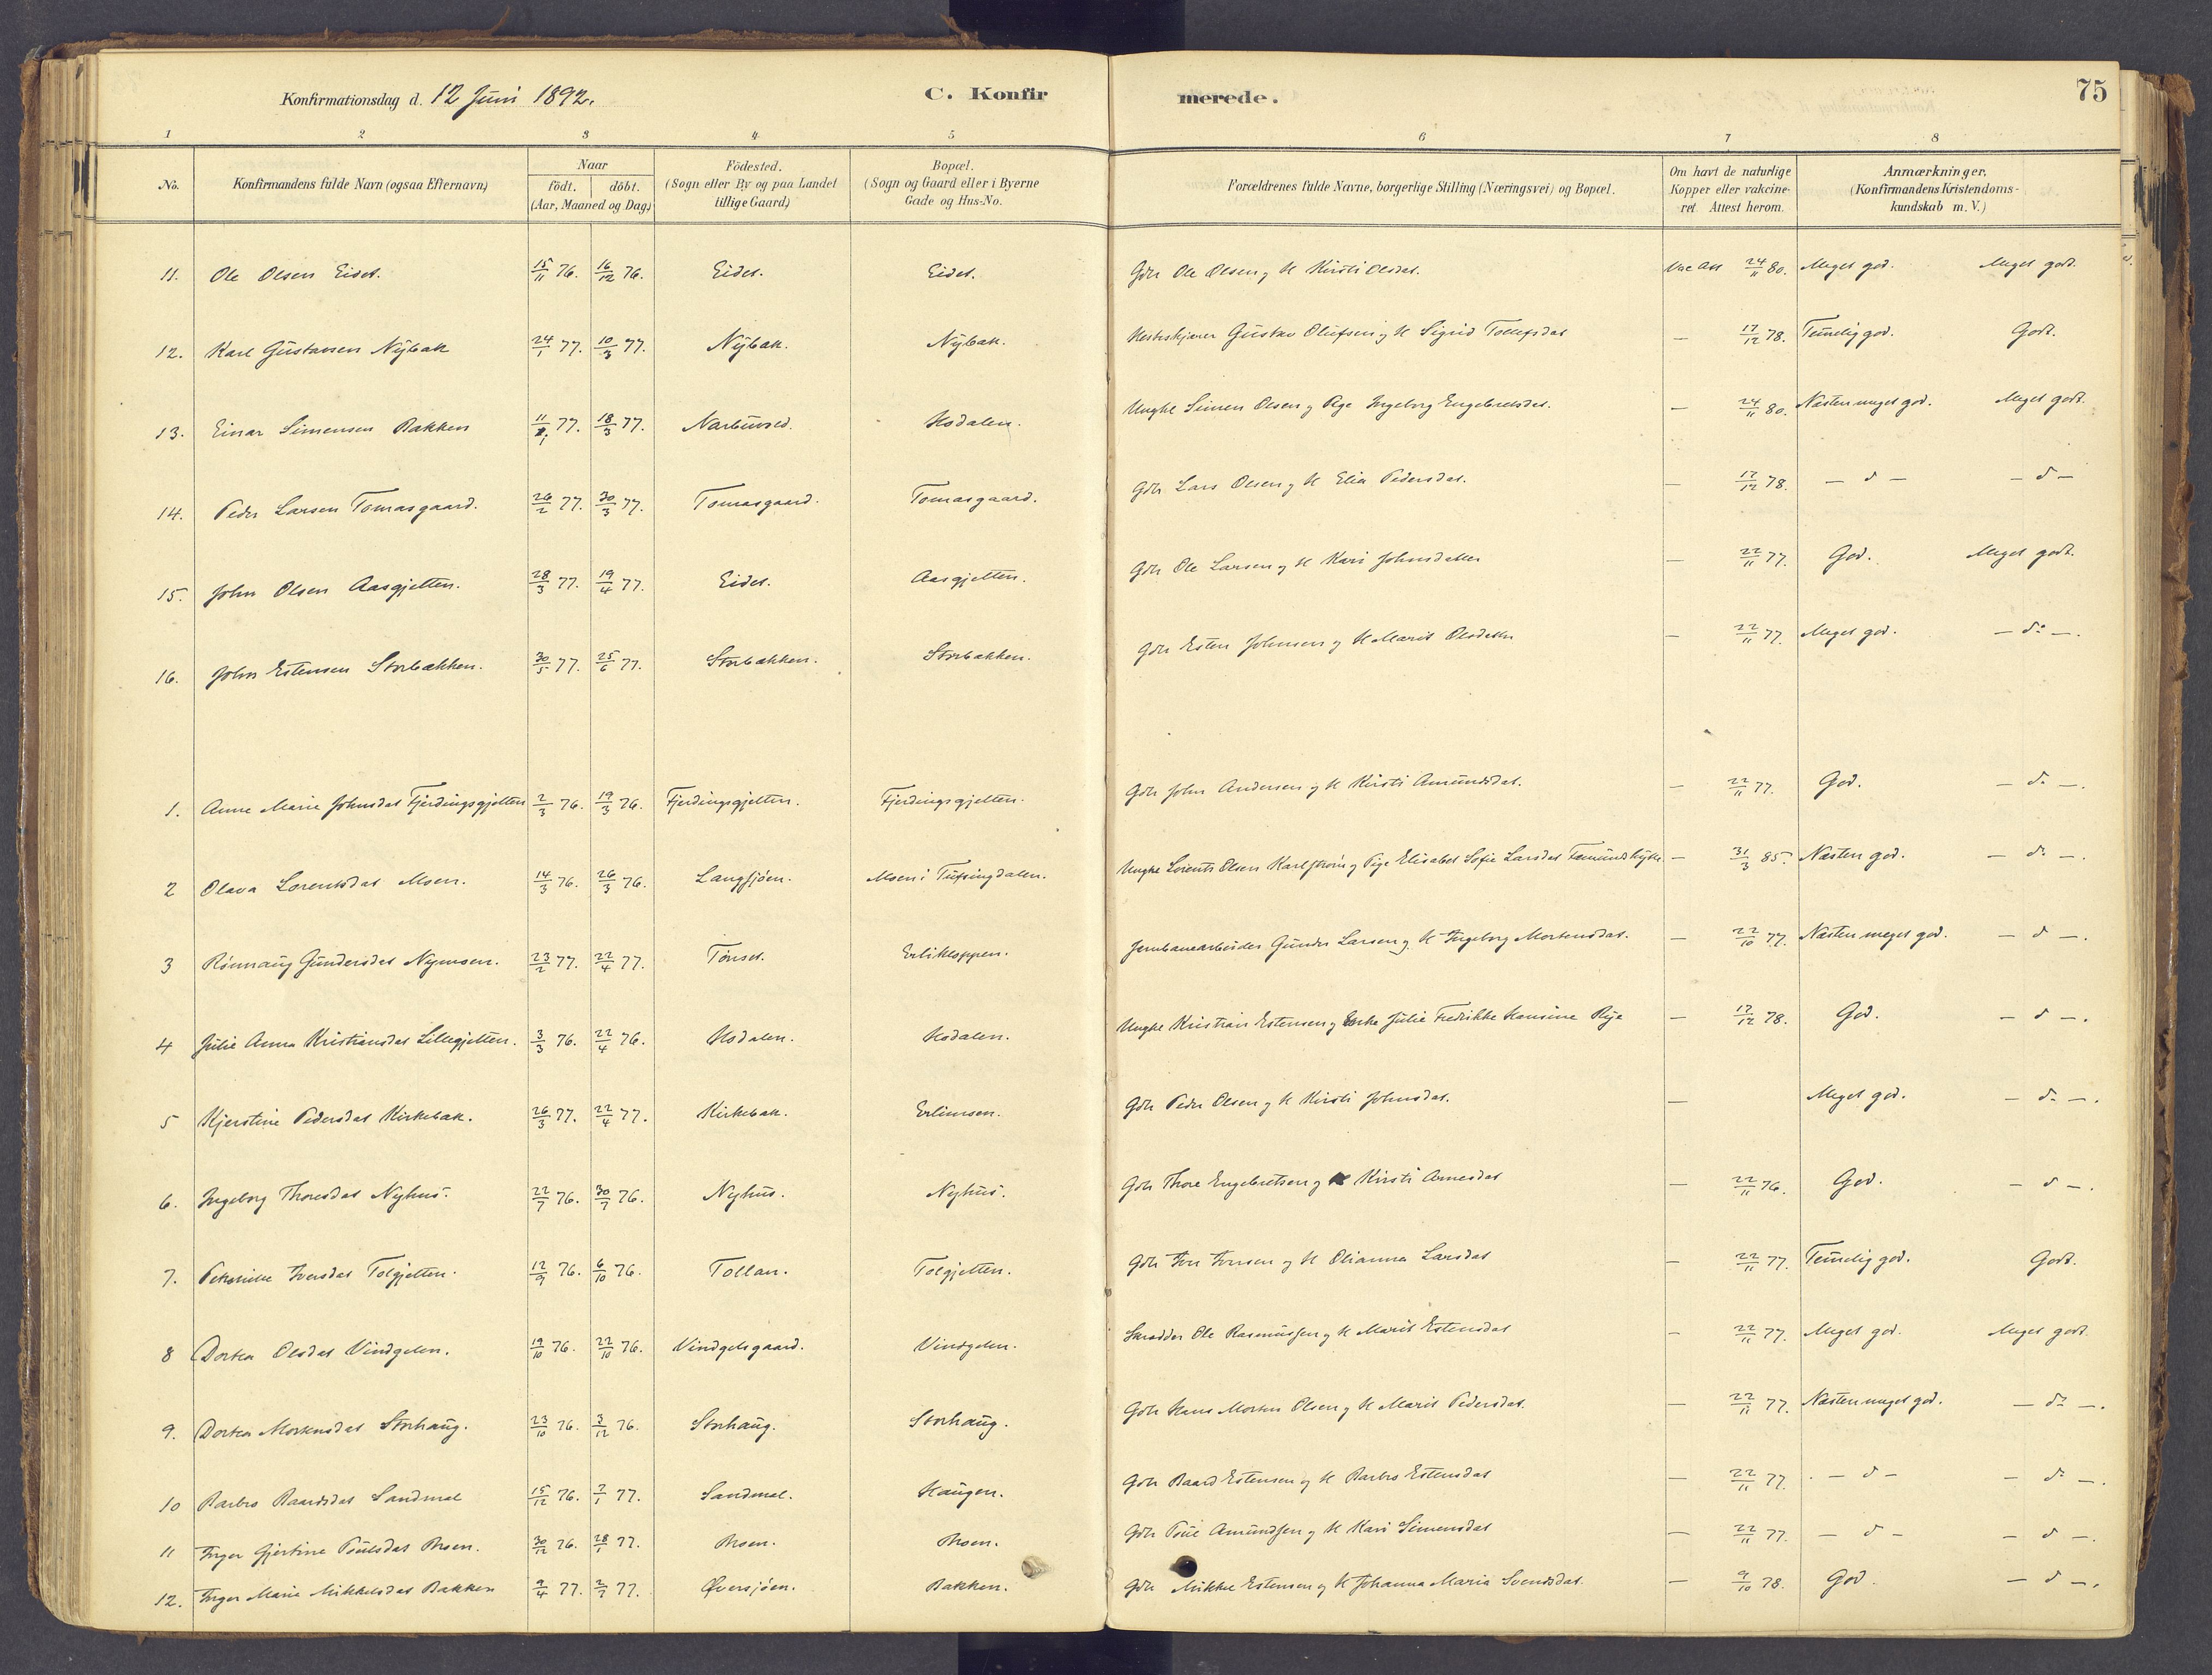 Konfirmationsdag d. 12 Juni 1892. C. Konfirmerede. 75
1 2 3 4 5 6 7 8
No. Konfirmandens fulde Navn (ogsaa Efternavn) Naar födt. döbt. (Aar, Maaned og Dag) Födested. (Sogn eller By og paa Landet tillige Gaard) Bopæl. (Sogn og Gaard eller i Byerne Gade og Hus-No. Forældrenes fulde Navne, borgerlige Stilling (Næringsvei) og Bopæl. Om havt de naturlige Kopper eller vakcineret. Attest herom. Anmærkninger, (Konfirmandens Kristendomskundskab m. V.)
11. Ole Olsen Eidet. 15/11 76. 16/12 76. Eidet. Eidet. Gdr Ole Olsen og K Kirsti Olsdat. Vac Att 24/11 80. Meget god. Meget godt.
12. Karl Gustavsen Nybak 24/1 77. 10/3 77. Nybak. Nybak. Gustav Olufsen og K Sigrid Tollefsdat — 17/12 78. Temelig god. Godt.
13. Einar Simensen Bakken 11/1 77. 18/3 77. Narbuvoed. Kodalen. Ungke Simen Olsen og Pige Ingeborg Engebretsdat. — 24/11 80. Næsten meget god. Meget godt.
14. Peder Larsen Tomasgaard. 26/2 77. 30/3 77. Tomasgaard. Tomasgaard. Gdr Lars Olsen og K Elia Pedersdat. — 17/12 78. — d — — d —
15. John Olsen Aasgjetten. 28/3 77. 19/4 77. Eidet. Aasgjetten. Gdr Ole Larsen og K Kari Johnsdatter — 22/11 77. God. Meget godt.
16. John Estensen Storbækken. 30/5 77. 25/6 77. Storbækken. Storbækken. Gdr Esten Johnsen og K Marit Olsdatter — 22/11 77. Meget god. — do —.
1. Anne Marie Johnsdat Fjerdingsgjetten 2/3 76. 19/3 76. Fjerdingsgjetten. Fjerdingsgjetten. Gdr John Andersen og K Kirsti Amundsdat. — 22/11 77. God. — do —.
2 Olava Lorentsdat Moen. 14/3 76. 26/3 76. Langsjøen. Moen i Tufsingdalen. Ungke Lorents Olsen Karlstrøm og Pige Elisabet Sofie Larsdat — 31/3 85. Næsten god. — do —.
3 Rønnaug Gundersdat Nymoen. 23/2 77. 22/4 77. Tønset. Erlikloppen. Jernbanearbeider Gunder Larsen og K Ingeborg Mortensdat. — 22/10 77. Næsten meget god. — d —.
4 Julie Anna Kristiansdat Lillegjetten. 3/3 76. 22/4 76. Kodalen. Kodalen. Ungke Kristian Estensen og Enke Julie Fredrikke Hansine Rye — 17/12 78. God. — d —.
5 Kjerstine Pedersdat Kirkebak. 26/3 77. 22/4 77. Kirkebak. Erlimoen. Gdr Peder Olsen og K Kirsti Johnsdat. — Meget god. — do —.
6. Ingeborg Thoresdat Nyhus. 22/7 76. 30/7 76. Nyhus. Nyhus. Gdr Thore Engebretsen og K Kirsti Arnesdat — 22/11 76. God. — d —.
7. Iversdat Tolgjetten. 12/9 76. 6/10 76. Tollan. Tolgjetten. Gdr Iver Iversen og K Olianna Larsdat — 22/11 77. Temelig god. Godt.
8 Dortea Olsdat Vindgelen. 19/10 76. 22/10 76. Vindgelsgaard. Vindgelen. Skrædder Ole Rasmussen og K Marit Estensdat — 22/11 77. Meget god. Meget godt.
9. Dortea Mortensdat Storhaug. 23/10 76. 3/12 76. Storhaug. Storhaug. Gdr Hans Morten Olsen og K Marit Pedersdat. — 22/11 77. Næsten meget god. — do —.
10 Barbro Baardsdat Sandmæl 15/12 76. 7/1 77. Sandmæl. Haugen. Gdr Baard Estensen og K Barbro Estensdat — 22/11 77. — d — — do —.
11 Inger Gjertine Poulsdat Moen. 30/12 76. 28/1 77. Moen. Moen. Gdr Poul Amundsen og K Kari Simensdat — 22/11 77. — d — — d —.
12. Inger Marie Mikkelsdat Bakken 9/4 77. 2/7 77. Øversjøen. Bakken. Gdr Mikkel Estensen og K Johanna Maria Svendsdat. — 9/10 78. God. — d —.